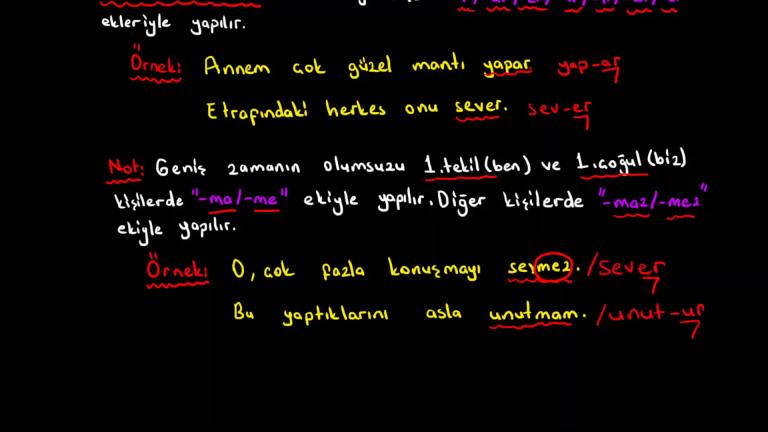 ekleriyle yapılır.
Örnek: Annem çok güzel mantı yapar yap-ar
Etrafındaki herkes onu sever. sev-er
Not: Geniş zamanın olumsuzu 1.tekil (ben) ve 1.çoğul (biz)
kişilerde "-ma/-me" ekiyle yapılır. Diğer kişilerde "-maz/-mez"
ekiyle yapılır.
Örnek: O, çok fazla konuşmayı sevmez. /sever
Bu yaptıklarını asla unutmam. /unut-ur